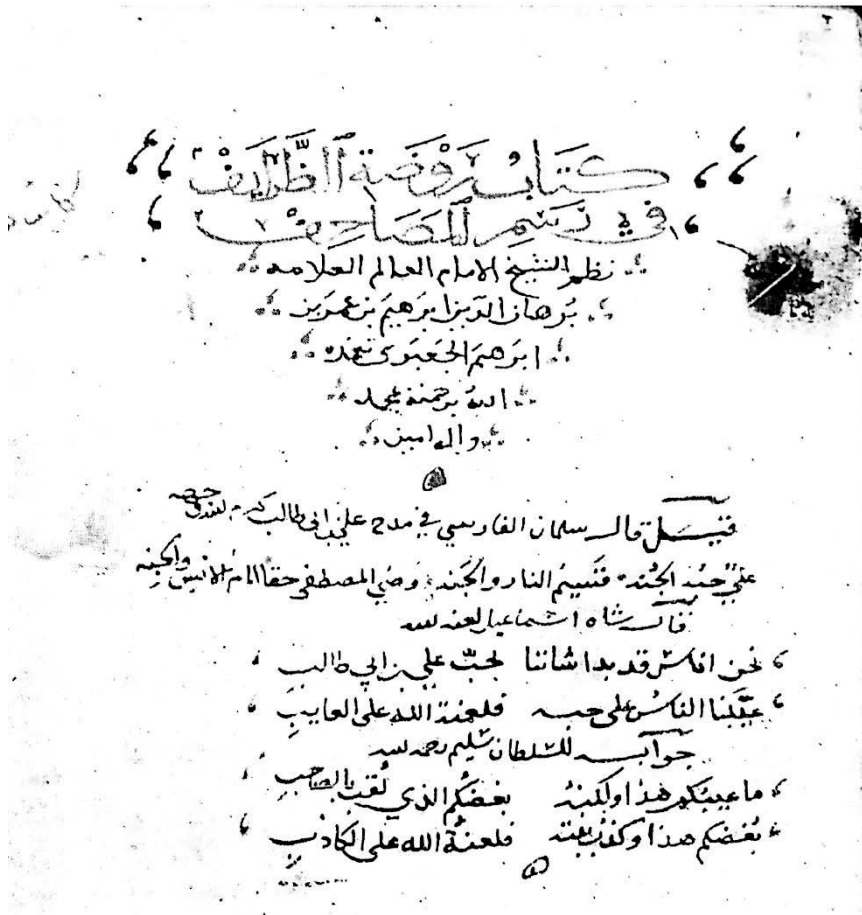 كتاب روضة الظرايف
في رسم المصاحف
نظم الشيخ الامام العالم العلامه
برهان الدين ابرهيم بن عمر بن
ابرهيم الجعبري تغمده
الله برحمته بمحمد
واله امين
قيل قال سلمان الفارسي في مدح علي بن ابي طالب كرم الله وجهه
علي حبه الجنه قسيم النار والجنه وصي المصطفى حقا امام الانس والجنه
قال شاه اسماعيل لعنه الله
نحن اناس قد بدا شاننا لحب علي بن ابي طالب
عيبنا الناس على حبه فلعنة الله على العايب
جوابه للسلطان سليم رحمه الله
ما عيبكم هذا ولكنه بغضكم الذي لقب بالصاحب
بغضكم هذا وكذب فلعنة الله على الكاذب